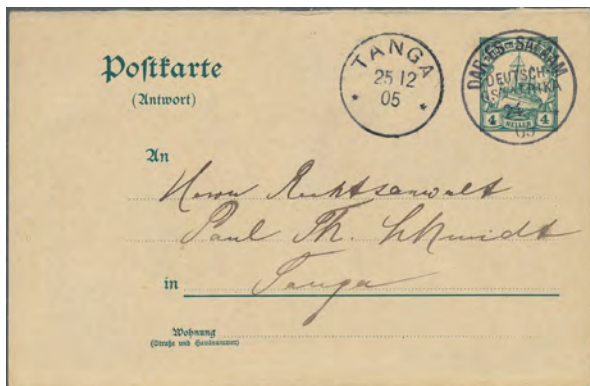 Postkarte
(Antwort)
TANGA
25 12
05
DAR-ES-SALAAM
DEUTSCH-
OSTAFRIKA
05
4 4
HELLER
An
Herrn Rechtsanwalt
Paul Th. Schmidt
in Tanga
Wohnung
(Straße und Hausnummer)